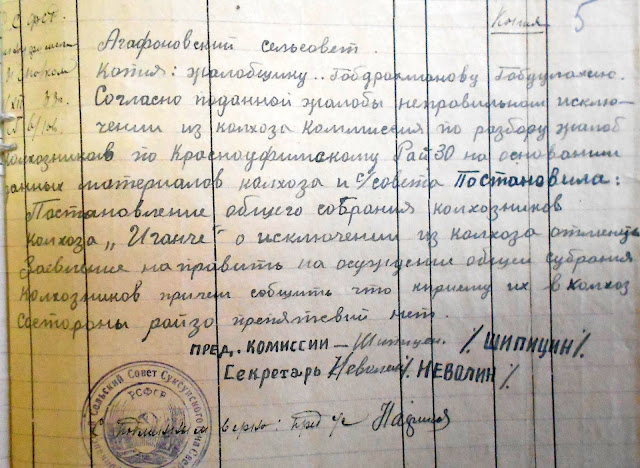 Копия 5
Агафоновский сельсовет.
Копия: жалобщику.. Гобдрахманову Гобдулахию.
Согласно поданной жалобы неправильном исклю-
чении из колхоза Коммиссия по разбору жалоб
колхозников по Красноуфимскому РайЗО на основании
данных материалов колхоза и с/совета Постановила:
Постановление общего собрания колхозников
колхоза „Иганче" о исключении из колхоза отменить
Заевление направить на осуждение общеи субрания
колхозников причем собщить что кприему их в колхоз
состораны райзо препятсвий нет.
ПРЕД. КОМИССИИ – Шипицин /. ШИПИЦИН /.
Секретарь Неволин /. НЕВОЛИН /.
Сельский Совет Суксунского
РСФСР
верно: пред с/с